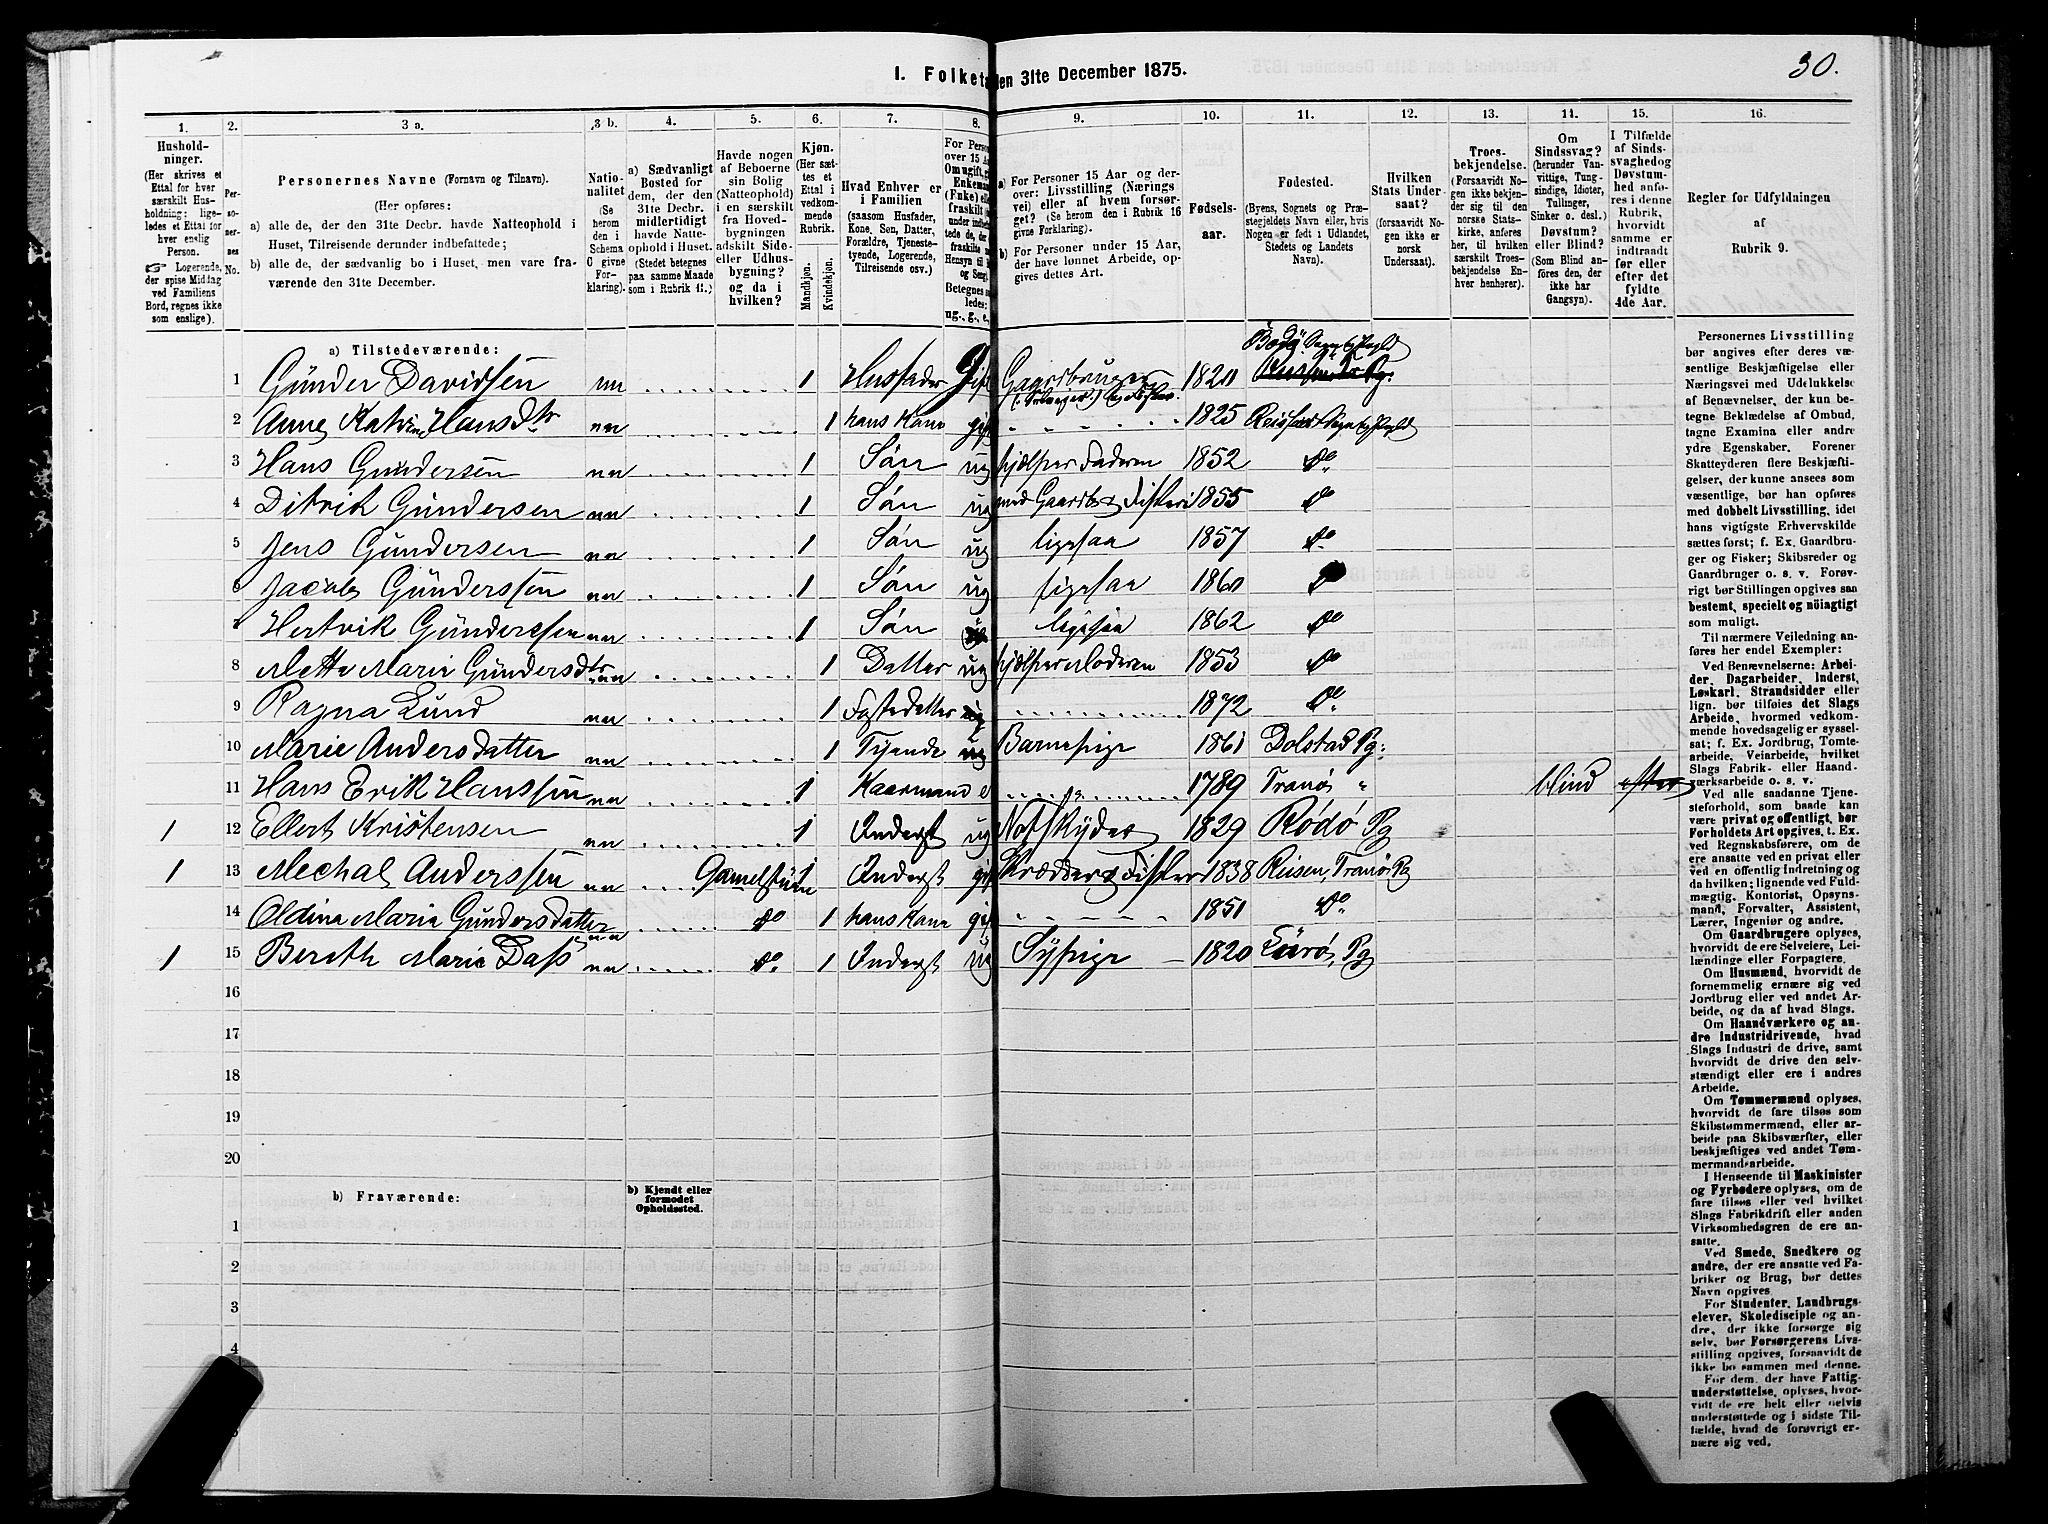 30.
I. Folketa
den 31te December 1875.
1. 2. 3 a. 3 b. 4. 5. 6. 7. 8. 9. 10. 11. 12. 13. 14. 15. 16.
Hushold-
ninger.
(Her skrives et
Ettal for hver
særskilt Hus-
holdning; lige-
ledes et Ettal for
hver enslig
Person.
☞ Logerende,
der spise Middag
ved Familiens
Bord, regnes ikke
som enslige).
Per-
so-
ner-
nes
No.
Personernes Navne (Fornavn og Tilnavn).
(Her opføres:
a) alle de, der den 31te Decbr. havde Natteophold i
Huset, Tilreisende derunder indbefattede;
b) alle de, der sædvanlig bo i Huset, men vare fra-
værende den 31te December.
Natio-
nalitet
(Se
herom
den i
Schema
C givne
For-
klaring).
a) Sædvanligt
Bosted for
dem, der den
31te Decbr.
midlertidigt
havde Natte-
ophold i Huset.
(Stedet betegnes
paa samme Maade
som i Rubrik 11.)
Havde nogen
af Beboerne
sin Bolig
(Natteophold)
i en særskilt
fra Hoved-
bygningen
adskilt Side-
eller Udhus-
bygning?
og da i
hvilken?
Kjøn.
(Her sæt-
tes et
Ettal i
vedkom-
mende
Rubrik.
Mandkjøn.
Kvindekjøn.
Hvad Enhver er
i Familien
(saasom Husfader,
Kone, Søn, Datter,
Forældre, Tjeneste-
tyende, Logerende,
Tilreisende osv.)
For Person
over 15 Aa
Om ugift, g
Enkemand
(Enke) elle
fraskilt
under indb
tede de, de
fraskilte
Hensyn til
og Seng.
Betegnes s
ledes:
ug., g., e.,
a) For Personer 15 Aar og der-
over: Livsstilling (Nærings
vei) eller af hvem forsør-
get? (Se herom den i Rubrik 16
givne Forklaring).
b) For Personer under 15 Aar,
der have lønnet Arbeide, op-
gives dettes Art.
Fødsels-
aar.
Fødested.
(Byens, Sognets og Præ-
stegjeldets Navn eller, hvis
Nogen er født i Udlandet,
Stedets og Landets
Navn).
Hvilken
Stats Under-
saat?
(forsaavidt No-
gen ikke er
norsk
Undersaat).
Troes-
bekjendelse.
(Forsaavidt No-
gen ikke bekjen-
der sig til den
norske Stats-
kirke, anføres
her, til hvilken
særskilt Troes-
bekjendelse En-
hver henhører).
Om
Sindssvag?
(herunder Van-
vittige, Tung-
sindige, Idioter,
Tullinger,
Sinker o. desl.)
Døvstum?
eller Blind?
(Som Blind an-
føres den, der
ikke har
Gangsyn).
I Tilfælde
af Sinds-
svaghedog
Døvstum-
hed anfø-
res i denne
Rubrik,
hvorvidt
samme er
indtraadt
før eller
efter det
fyldte
4de Aar.
Regler for Udfyldningen
af
Rubrik 9.
a) Tilstedeværende:
1 Günder Davidsen nn 1 Husfader Gift Gaardbruger 1820 Bodø
2 Anne Katrine Hansdtr nn 1 hans Kone gift 1825
3 Hans Gundersen nn 1 Søn ug hjælper Faderen 1852 do
4 Ditrik Gündersen nn 1 Søn ug med Gaardbr & Fiskeri 1855 do
5 Jens Gündersen nn 1 Søn ug ligesaa 1857 do
6 Jacob Günderssen nn 1 Søn ug ligesaa 1860 do
7 Hertvik Günderssen nn 1 Søn ligesaa 1862 do
8 Mette Marie Gündersdtr nn 1 Datter ug hjælper Moderen 1853 do
9 Ragna Lund nn 1 Fostedatter 1872 do
10 Marie Andersdatter nn 1 Tjende ug Barnepige 1861 Dolstad Pg:
11 Hans Erik Hanssen nn 1 Kaarmand e 1789 Tranø " blind efter
1 12 Ellert Kristensen nn 1 Inderst ug Notskyder 1829 Rødø Pg
1 13 Mechal Anderssen nn Gamelstuen 1 Inderst gift Skrædder & Fisker 1838 Reisen, Tranø Pg
14 Oldina Maria Gündersdatter nn do 1 hans Kone gift 1851 do
1 15 Berith Marie Dass nn do. 1 Inderst ug Sypige 1820 Lurø, Pg
16
17
18
19
20
b) Fraværende:
b) Kjendt eller
formodet
Opholdssted.
1
2
3
4
Personernes Livsstilling
bør angives efter deres væ-
sentlige Beskjæftigelse eller
Næringsvei med Udelukkelse
af Benævnelser, der kun be-
tegne Beklædelse af Ombud,
tagne Examina eller andre
ydre Egenskaber. Forener
Skatteyderen flere Beskjæfti-
gelser, der kunne ansees som
væsentlige, bør han opføres
med dobbelt Livsstilling, idet
hans vigtigste Erhvervskilde
sættes først; f. Ex. Gaardbru-
ger og Fisker; Skibsreder og
Gaardbruger o. s. v. Forøv-
rigt bør Stillingen opgives saa
bestemt, specielt og nöiagtigt
som muligt.
Til nærmere Veiledning an-
føres her endel Exempler:
Ved Benævnelserne: Arbei-
der, Dagarbeider, Inderst,
Løskarl, Strandsidder eller
lign. bør tilføies det Slags
Arbeide, hvormed vedkom-
mende hovedsagelig er syssel-
sat; f. Ex. Jordbrug, Tomte-
arbeide, Veiarbeide, hvilket
Slags Fabrik- eller Haand-
værksarbeide o. s. v.
Ved alle saadanne Tjene-
steforhold, som baade kan
være privat og offentligt, bør
Forholdets Art opgives, t. Ex.
ved Regnskabsførere, om de
ere ansatte ved en privat eller
ved en offentlig Indretning og
da hvilken; lignende ved Fuld-
mægtig, Kontorist, Opsyns-
mand, Forvalter, Assistent,
Lærer, Ingeniør og andre.
Om Gaardbrugere oplyses,
hvorvidt de ere Selveiere, Lei-
lændinge eller Forpagtere.
Om Husmænd, hvorvidt de
fornemmelig ernære sig ved
Jordbrug eller ved andet Ar-
beide, og da af hvad Slags.
Om Haandværkere og an-
dre Industridrivende, hvad
Slags Industri de drive, samt
hvorvidt de drive den selv-
stændigt eller ere i andres
Arbeide.
Om Tømmermænd oplyses,
hvorvidt de fare tilsøs som
Skibstømmermænd, eller ar-
beide paa Skibsværfter, eller
beskjæftiges ved andet Tøm-
mermandsarbeide.
I Henseende til Maskinister
og Fyrbødere oplyses, om de
fare tilsøs eller ved hvilket
Slags Fabrikdrift eller anden
Virksomhedsgren de ere an-
satte.
Ved Smede, Snedkere og
andre, der ere ansatte ved Fa-
briker og Brug, bør dettes
Navn opgives.
For Studenter, Landbrugs-
elever, Skoledisciple og an-
dre, der ikke forsørge sig
selv, bør Forsørgerens Livs-
stilling opgives, forsaavidt de
ikke bo sammen med denne.
For dem, der have Fattig-
understøttelse, oplyses, hvor-
vidt de ere helt eller delvis
understøttede og i sidste Til-
fælde, hvad de forøvrigt er-
nære sig ved.